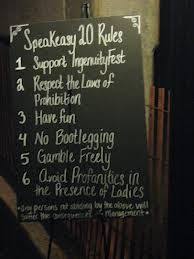 Speakeasy 20 Rules
1 Support IngenuityFest
2 Respect the Laws of
Prohibition
3 Have fun
4 No Bootlegging
5 Gamble Freely
6 Avoid Profanities in
the Presence of Ladies
*Any persons not abiding by the above will
suffer the consequences - Management*